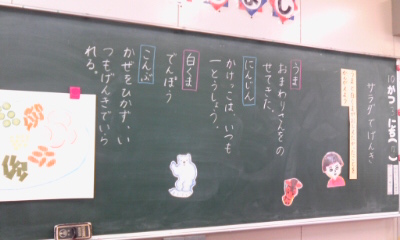 10がつ
にち(
サラダでげんき
うま
おまわりさんをの
せてきた。
にんじん
かけっこは、いつも
一とうしょう。
白くま
でんぽう
こんぶ
かぜをひかず、い
つもげんきでいら
れる。